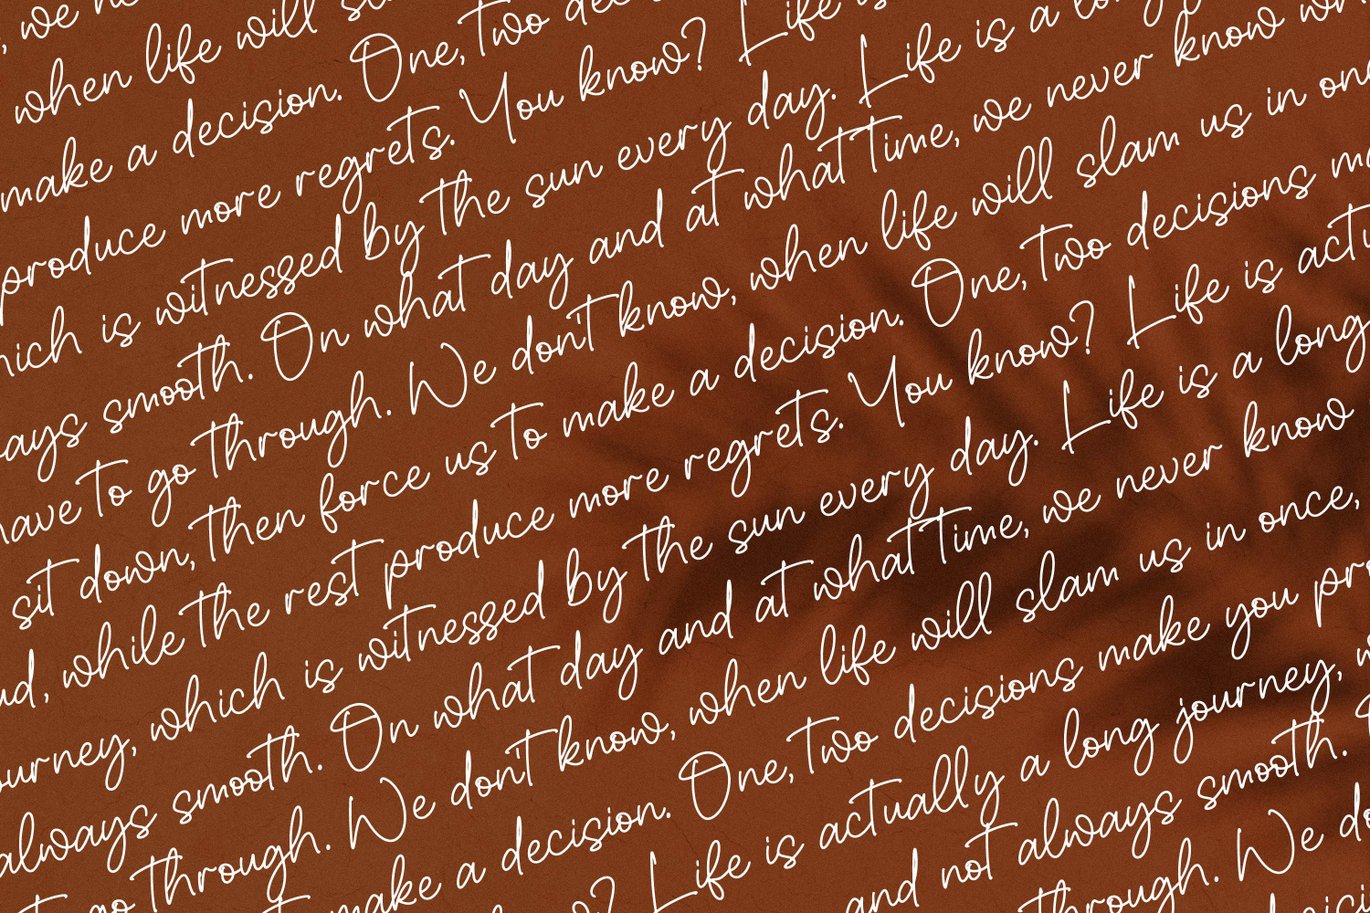 , we ne
when life will sl
make a decision. One, two dec
produce more regrets. You know? Life is
hich is witnessed by the sun every day. Life is a long
ays smooth. On what day and at what time, we never know wh
have to go through. We don't know, when life will slam us in on
sit down, then force us to make a decision. One, two decisions ma
nd, while the rest produce more regrets. You know? Life is actu
ourney, which is witnessed by the sun every day. Life is a long
always smooth. On what day and at what time, we never know
go through. We don't know, when life will slam us in once,
make a decision. One, two decisions make you pro
w? Life is actually a long journey, w
and not always smooth.
through. We do